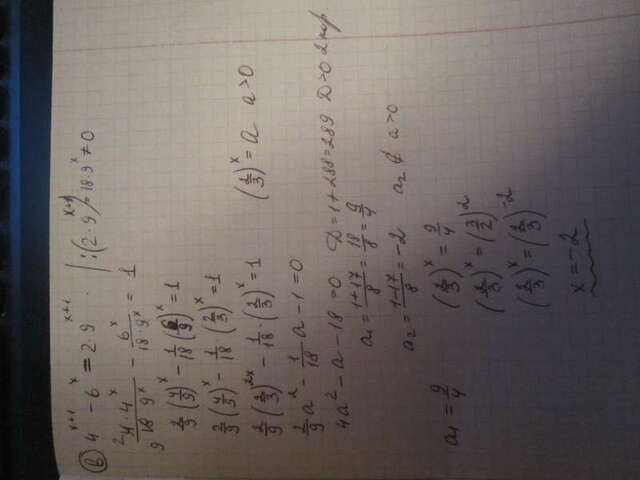 в) 4^(x+1) − 6^x = 2·9^(x+1) | : (2·9^(x+1)) = 18·9^x ≠ 0
(4·4^x)/(18·9^x) − 6^x/(18·9^x) = 1
2/9 (4/9)^x − 1/18 (6/9)^x = 1
2/9 (4/9)^x − 1/18 · (2/3)^x = 1
2/9 (2/3)^(2x) − 1/18 · (2/3)^x = 1 (2/3)^x = a a > 0
2/9 a² − 1/18 a − 1 = 0
4a² − a − 18 = 0 D = 1 + 288 = 289 D > 0 2 кор.
a₁ = (1+17)/8 = 18/8 = 9/4
a₂ = (1−17)/8 = −2 a₂ ∉ a > 0
a₁ = 9/4 (2/3)^x = 9/4
(2/3)^x = (3/2)^2
(2/3)^x = (2/3)^(−2)
x = −2